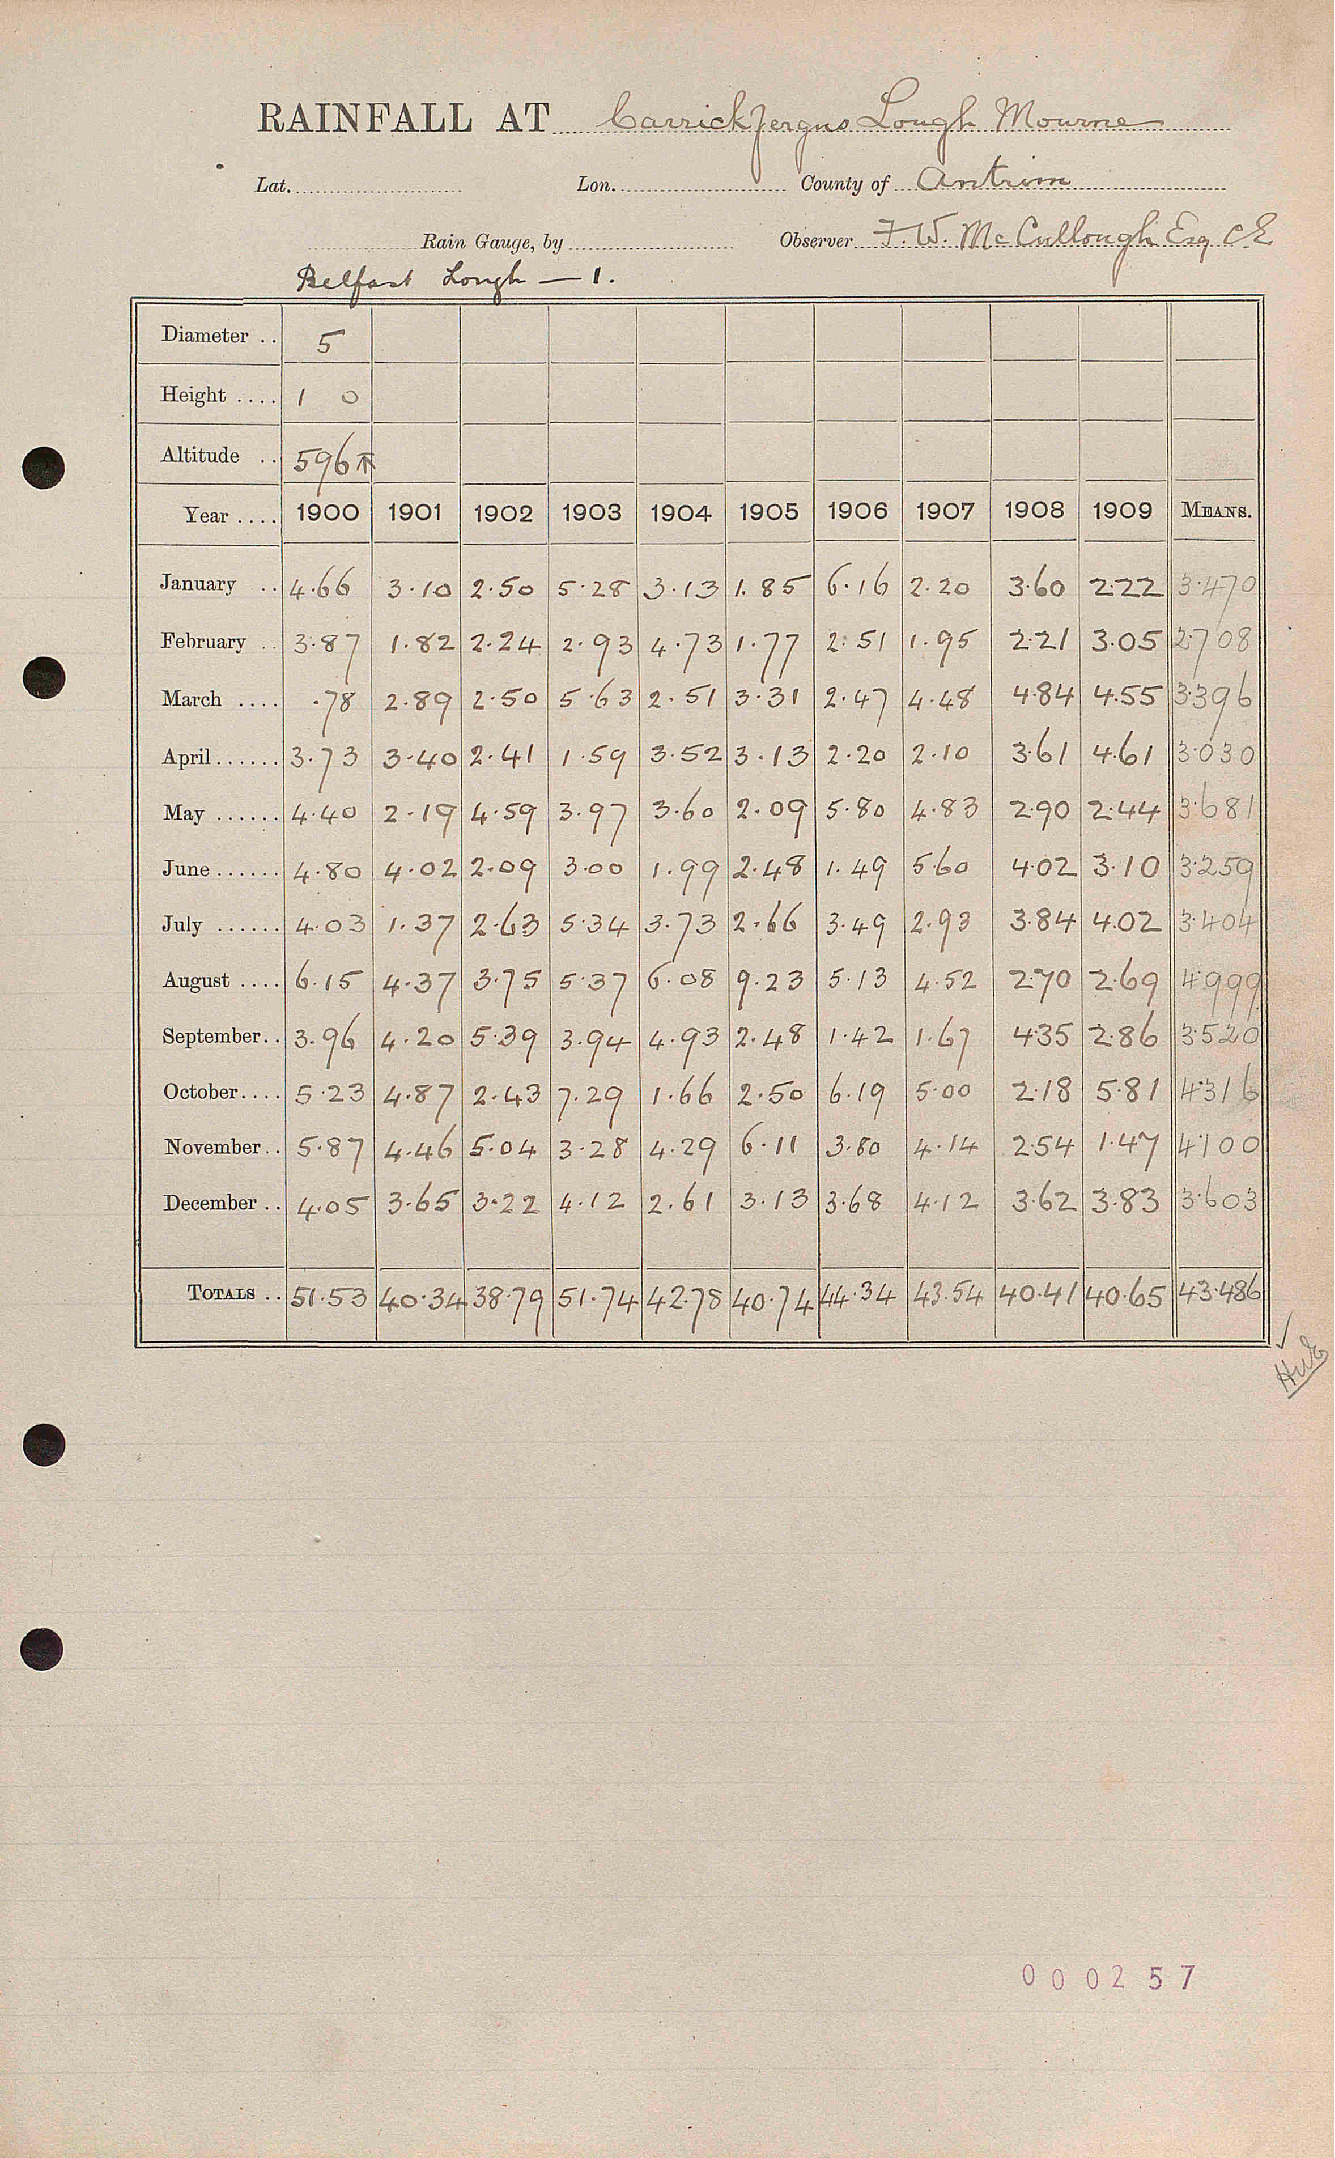 RAINFALL AT Carrickfergus Lough Mourne
Lat. Lon. County of Antrim
Rain Gauge, by Observer F. W. McCullough Esq CE
Belfast Lough — 1.
Diameter .. 5
Height .... 1 0
Altitude .. 596
Year .... 1900 1901 1902 1903 1904 1905 1906 1907 1908 1909 MEANS.
January .. 4.66 3.10 2.50 5.28 3.13 1.85 6.16 2.20 3.60 2.22 3.470
February .. 3.87 1.82 2.24 2.93 4.73 1.77 2.51 1.95 2.21 3.05 2.708
March .... .78 2.89 2.50 5.63 2.51 3.31 2.47 4.48 4.84 4.55 3.396
April ...... 3.73 3.40 2.41 1.59 3.52 3.13 2.20 2.10 3.61 4.61 3.030
May ...... 4.40 2.19 4.59 3.97 3.60 2.09 5.80 4.83 2.90 2.44 3.681
June ...... 4.80 4.02 2.09 3.00 1.99 2.48 1.49 5.60 4.02 3.10 3.259
July ...... 4.03 1.37 2.63 5.34 3.73 2.66 3.49 2.93 3.84 4.02 3.404
August .... 6.15 4.37 3.75 5.37 6.08 9.23 5.13 4.52 2.70 2.69 4.999
September.. 3.96 4.20 5.39 3.94 4.93 2.48 1.42 1.67 4.35 2.86 3.520
October.... 5.23 4.87 2.43 7.29 1.66 2.50 6.19 5.00 2.18 5.81 4.316
November.. 5.87 4.46 5.04 3.28 4.29 6.11 3.80 4.14 2.54 1.47 4.100
December .. 4.05 3.65 3.22 4.12 2.61 3.13 3.68 4.12 3.62 3.83 3.603
TOTALS .. 51.53 40.34 38.79 51.74 42.78 40.74 44.34 43.54 40.41 40.65 43.486
000257